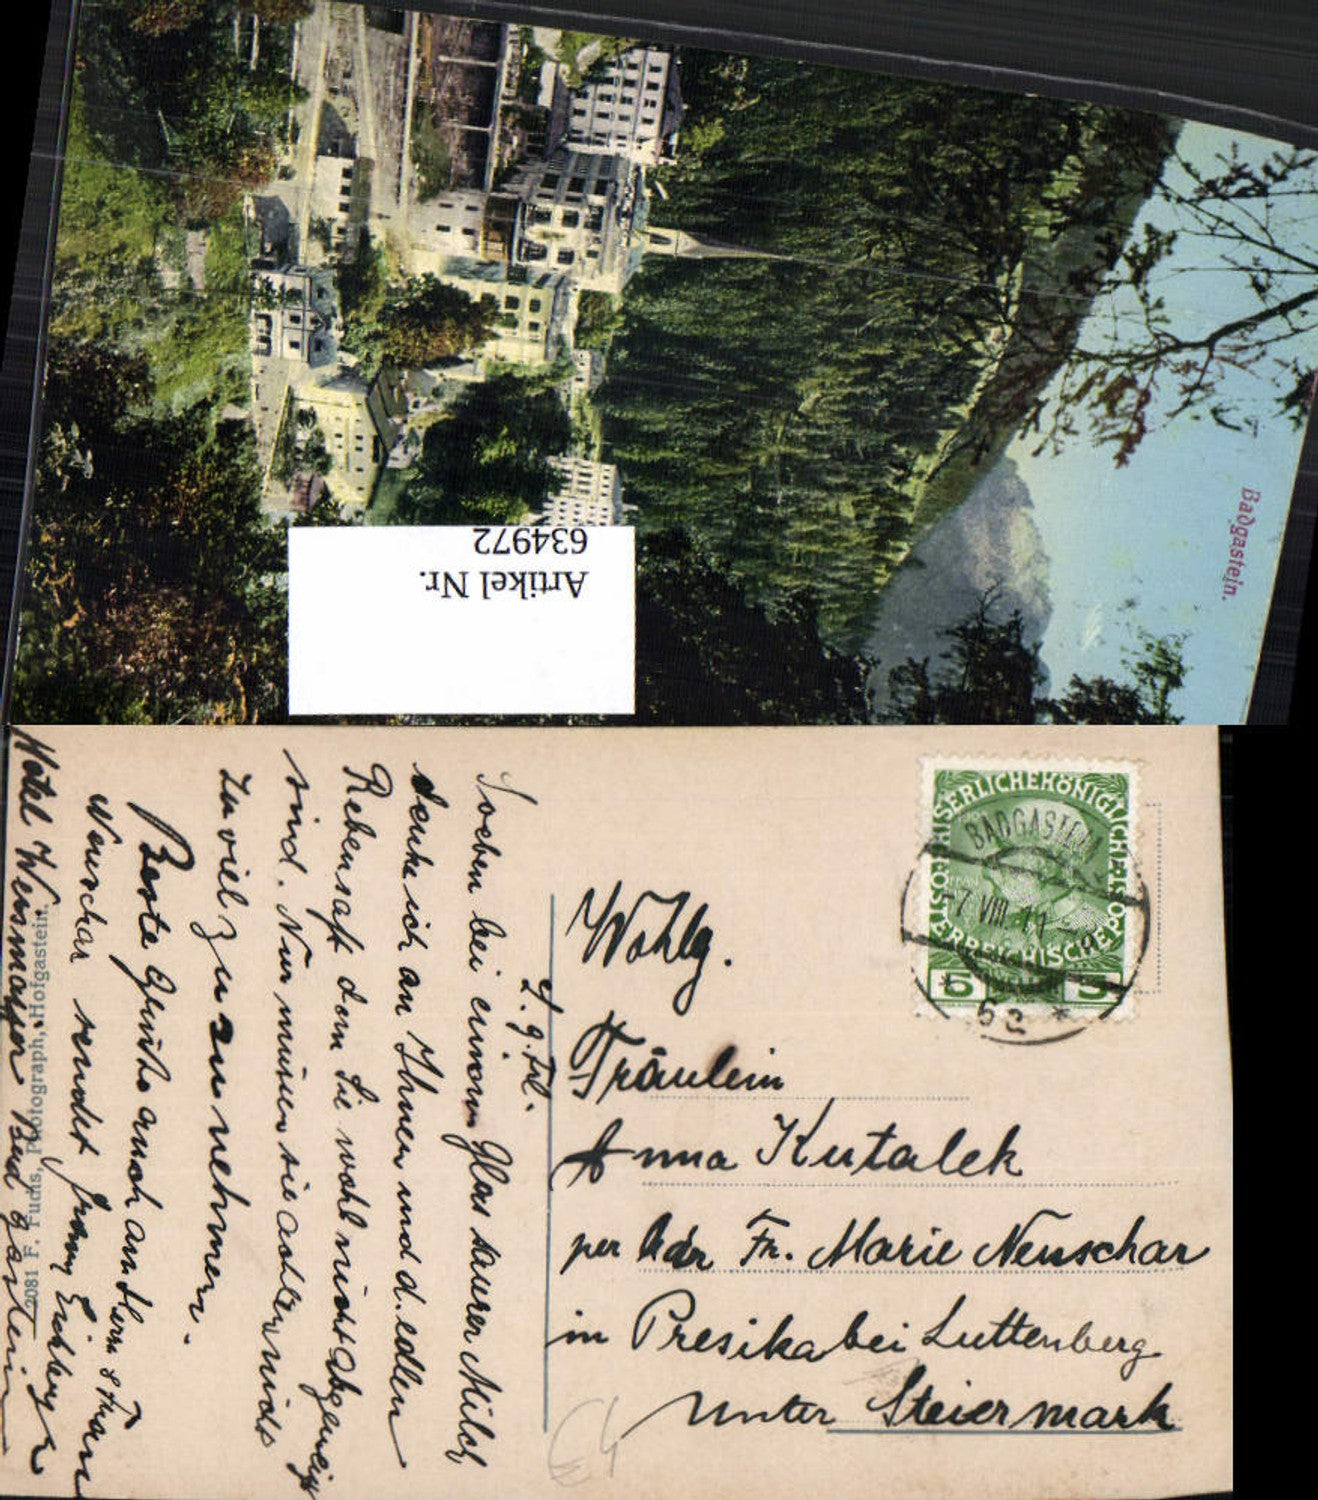 Badgastein.
Artikel Nr.
634972
KAISERLICHE KÖNIGLICHE ÖSTERREICHISCHE POST
BADGASTEIN
7 VIII 11
* 5a *
5 HELLER 5
Wohlg.
Fräulein
Anna Kutalek
per Adr Fr. Marie Neuschar
in Presika bei Luttenberg
Unter Steiermark
L. g. Frl.
Soeben bei einem Glas saurer Milch
denke ich an Ihnen und d. edlen
Rebensaft dem Sie wohl nicht abgeneigt
sind. Nur müssen sie acht
zu viel zu nehmen.
Beste Grüße auch an Herr & Frau
Neuschar sendet Eichberger
Hotel Weismayer Bad Gastein
2081 F. Fuchs, Photograph, Hofgastein.